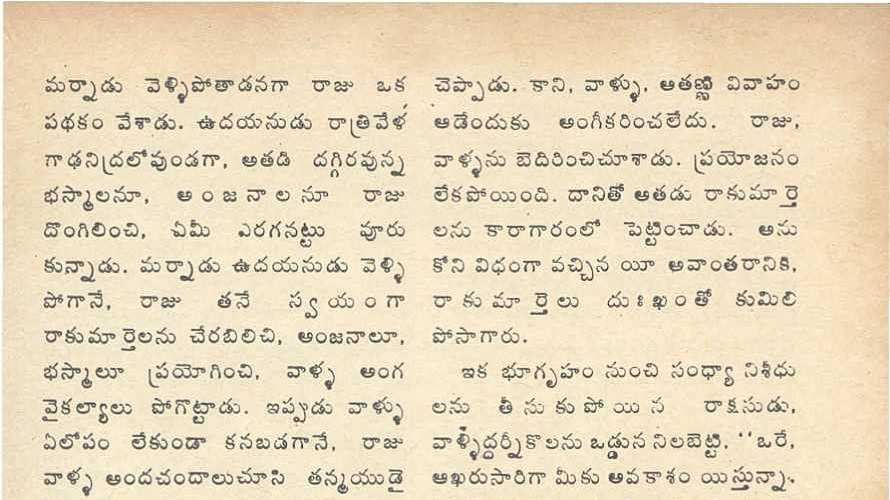 మర్నాడు వెళ్ళిపోతాడనగా రాజు ఒక
పథకం వేశాడు. ఉదయనుడు రాత్రివేళ
గాఢనిద్రలోవుండగా, అతడి దగ్గిరవున్న
భస్మాలనూ, అంజనాలనూ రాజు
దొంగిలించి, ఏమీ ఎరగనట్టు వూరు
కున్నాడు. మర్నాడు ఉదయనుడు వెళ్ళి
పోగానే, రాజు తనే స్వయంగా
రాకుమార్తెలను చేరబిలిచి, అంజనాలూ,
భస్మాలూ ప్రయోగించి, వాళ్ళ అంగ
వైకల్యాలు పోగొట్టాడు. ఇప్పుడు వాళ్ళు
ఏలోపం లేకుండా కనబడగానే, రాజు
వాళ్ళ అందచందాలుచూసి తన్మయుడై
చెప్పాడు. కాని, వాళ్ళు, ఆతణ్ణి వివాహం
ఆడేందుకు అంగీకరించలేదు. రాజు,
వాళ్ళను బెదిరించిచూశాడు. ప్రయోజనం
లేకపోయింది. దానితో అతడు రాకుమార్తె
లను కారాగారంలో పెట్టించాడు. అను
కోని విధంగా వచ్చిన యీ అవాంతరానికి,
రాకుమార్తెలు దుఃఖంతో కుమిలి
పోసాగారు.
ఇక భూగృహం నుంచి సంధ్యా నిశీధు
లను తీసుకుపోయిన రాక్షసుడు,
వాళ్ళిద్దర్నీకొలను ఒడ్డున నిలబెట్టి. "ఒరే,
ఆఖరుసారిగా మీకు అవకాశం యిస్తున్నా.